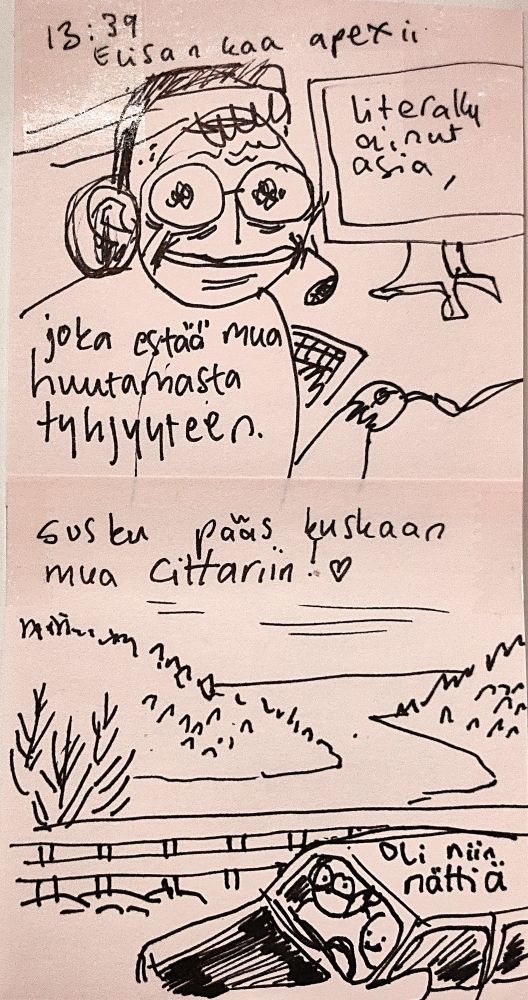 13:39
Elisan kaa apexii
literally
ainut
asia,
joka estää mua
huutamasta
tyhjyyteen.
susku pääs kuskaan
mua cittariin! ♡
Oli niin
nättiä